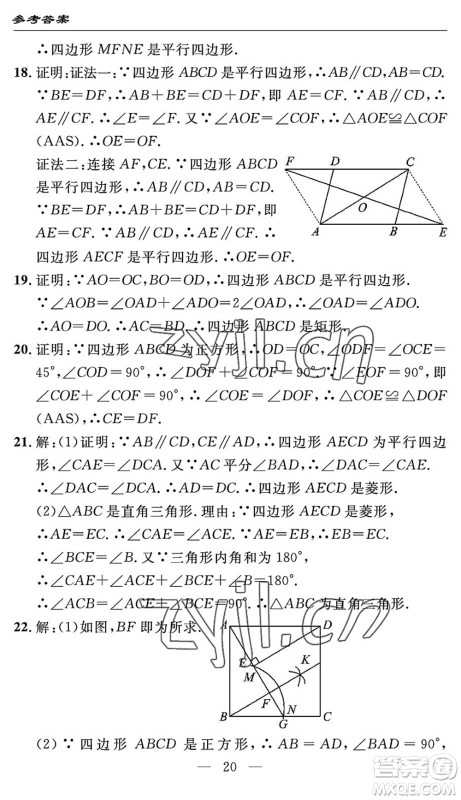 参考答案
∴四边形 MFNE 是平行四边形.
18. 证明:证法一:∵四边形 ABCD 是平行四边形,∴AB∥CD,AB=CD.
∵BE=DF,∴AB+BE=CD+DF,即 AE=CF.∵AB∥CD,∴
AE∥CF.∴∠E=∠F.又∵∠AOE=∠COF,∴△AOE≌△COF
(AAS).∴OE=OF.
证法二:连接 AF,CE.∵四边形 ABCD
是平行四边形,∴AB∥CD,AB=CD.
∵BE=DF,∴AB+BE=CD+DF,即
AE=CF.∵AB∥CD,∴AE∥CF.∴四
边形 AECF 是平行四边形.∴OE=OF.
F D C
O
A B E
19. 证明:∵AO=OC,BO=OD,∴四边形 ABCD 是平行四边形.
∵∠AOB=∠DAO+∠ADO=2∠OAD,∴∠DAO=∠ADO.
∴AO=DO.∴AC=BD.∴四边形 ABCD 是矩形.
20. 证明:∵四边形 ABCD 为正方形,∴OD=OC,∠ODF=∠OCE=
45°,∠COD=90°,∴∠DOF+∠COF=90°.∵∠EOF=90°,即
∠COE+∠COF=90°,∴∠COE=∠DOF,∴△COE≌△DOF
(AAS),∴CE=DF.
21. 解:(1)证明:∵AB∥CD,CE∥AD,∴四边形 AECD 为平行四边
形,∠CAE=∠DCA.又∵AC 平分∠BAD,∴∠CAE=∠DAC.
∴∠DAC=∠DCA.∴AD=DC.∴四边形 AECD 是菱形.
(2)△ABC 是直角三角形.理由:∵四边形 AECD 是菱形,
∴AE=EC.∴∠CAE=∠ACE.∵AE=BE,∴BE=CE.
∴∠BCE=∠B.又∵三角形内角和为 180°,
∴∠CAE+∠ACE+∠BCE+∠B=180°.
∴∠ACB=∠ACE+∠BCE=90°.∴△ABC 为直角三角形.
22. 解:(1)如图,BF 即为所求.
A D
E K
M
F N
B G C
(2)∵四边形 ABCD 是正方形,∴AB=AD,∠BAC=90°,
20
zyjl.cn
答案圈
MXQE.COM